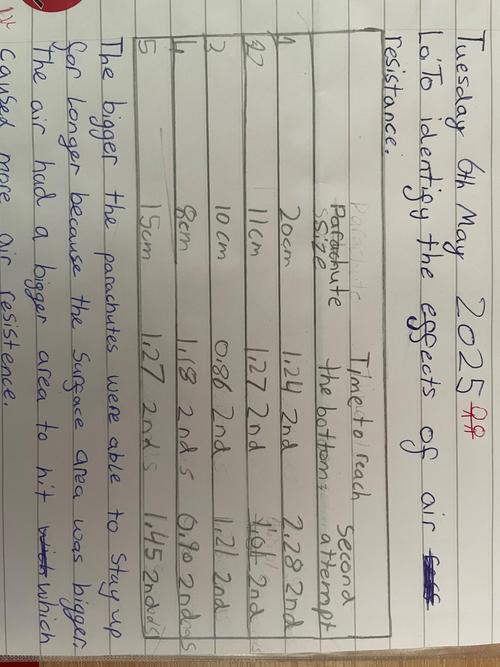 Tuesday 6th May 2025
Lo: To identify the effects of air
resistance.
Parachute size Time to reach the bottom: Second attempt
1 20cm 1.24 2nd 2.28 2nd
2 11cm 1.27 2nd 1.01 2nd
3 10cm 0.86 2nd 1.21 2nd
4 8cm 1.18 2nds 0.90 2nds
5 15cm 1.27 2nds 1.45 2nds
The bigger the parachutes were able to stay up
for longer because the surface area was bigger.
The air had a bigger area to hit which
caused more air resistence.